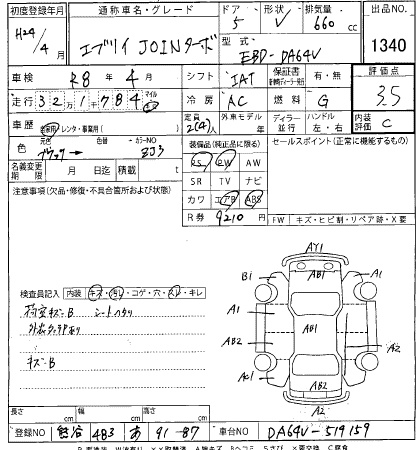 初度登録年月 通称車名・グレード ドア 形状 排気量 出品No.
H24/4月 エブリイ JOINターボ 5 V 660cc 1340
型式 EBD-DA64V
車検 R8年4月 シフト IAT 保証書 有・無 評価点
走行 32万1千784 マイル km 冷房 AC 燃料 G 3.5
車歴 自家用・レンタ・事業用( ) 定員 2(4)人 外車モデル 年 ディーラー 並行 ハンドル 左・右 内装評価 C
色 元色 ブラック → 色替 カラーNO ZJ3 装備品(純正品に限る) セールスポイント(正常に機能するもの)
名義変更期限 月 日迄 積載 t PS PW AW
SR TV ナビ
注意事項(欠品・修復・不具合箇所および状態) カワ エアB ABS
R券 9210円 FW キズ・ヒビ割・リペア跡・X要
AY1
B1 AB1 A1
検査員記入 内装 キズ・汚レ・コゲ・穴・スレ・キレ
荷室キズB シートヘタリ A1 AB1
AB2 A2
キズB
AC1 AB2 A1
A2
長さ cm 幅 cm 高さ cm
登録NO 熊谷 483 あ 91-87 車台NO DA64V-519159